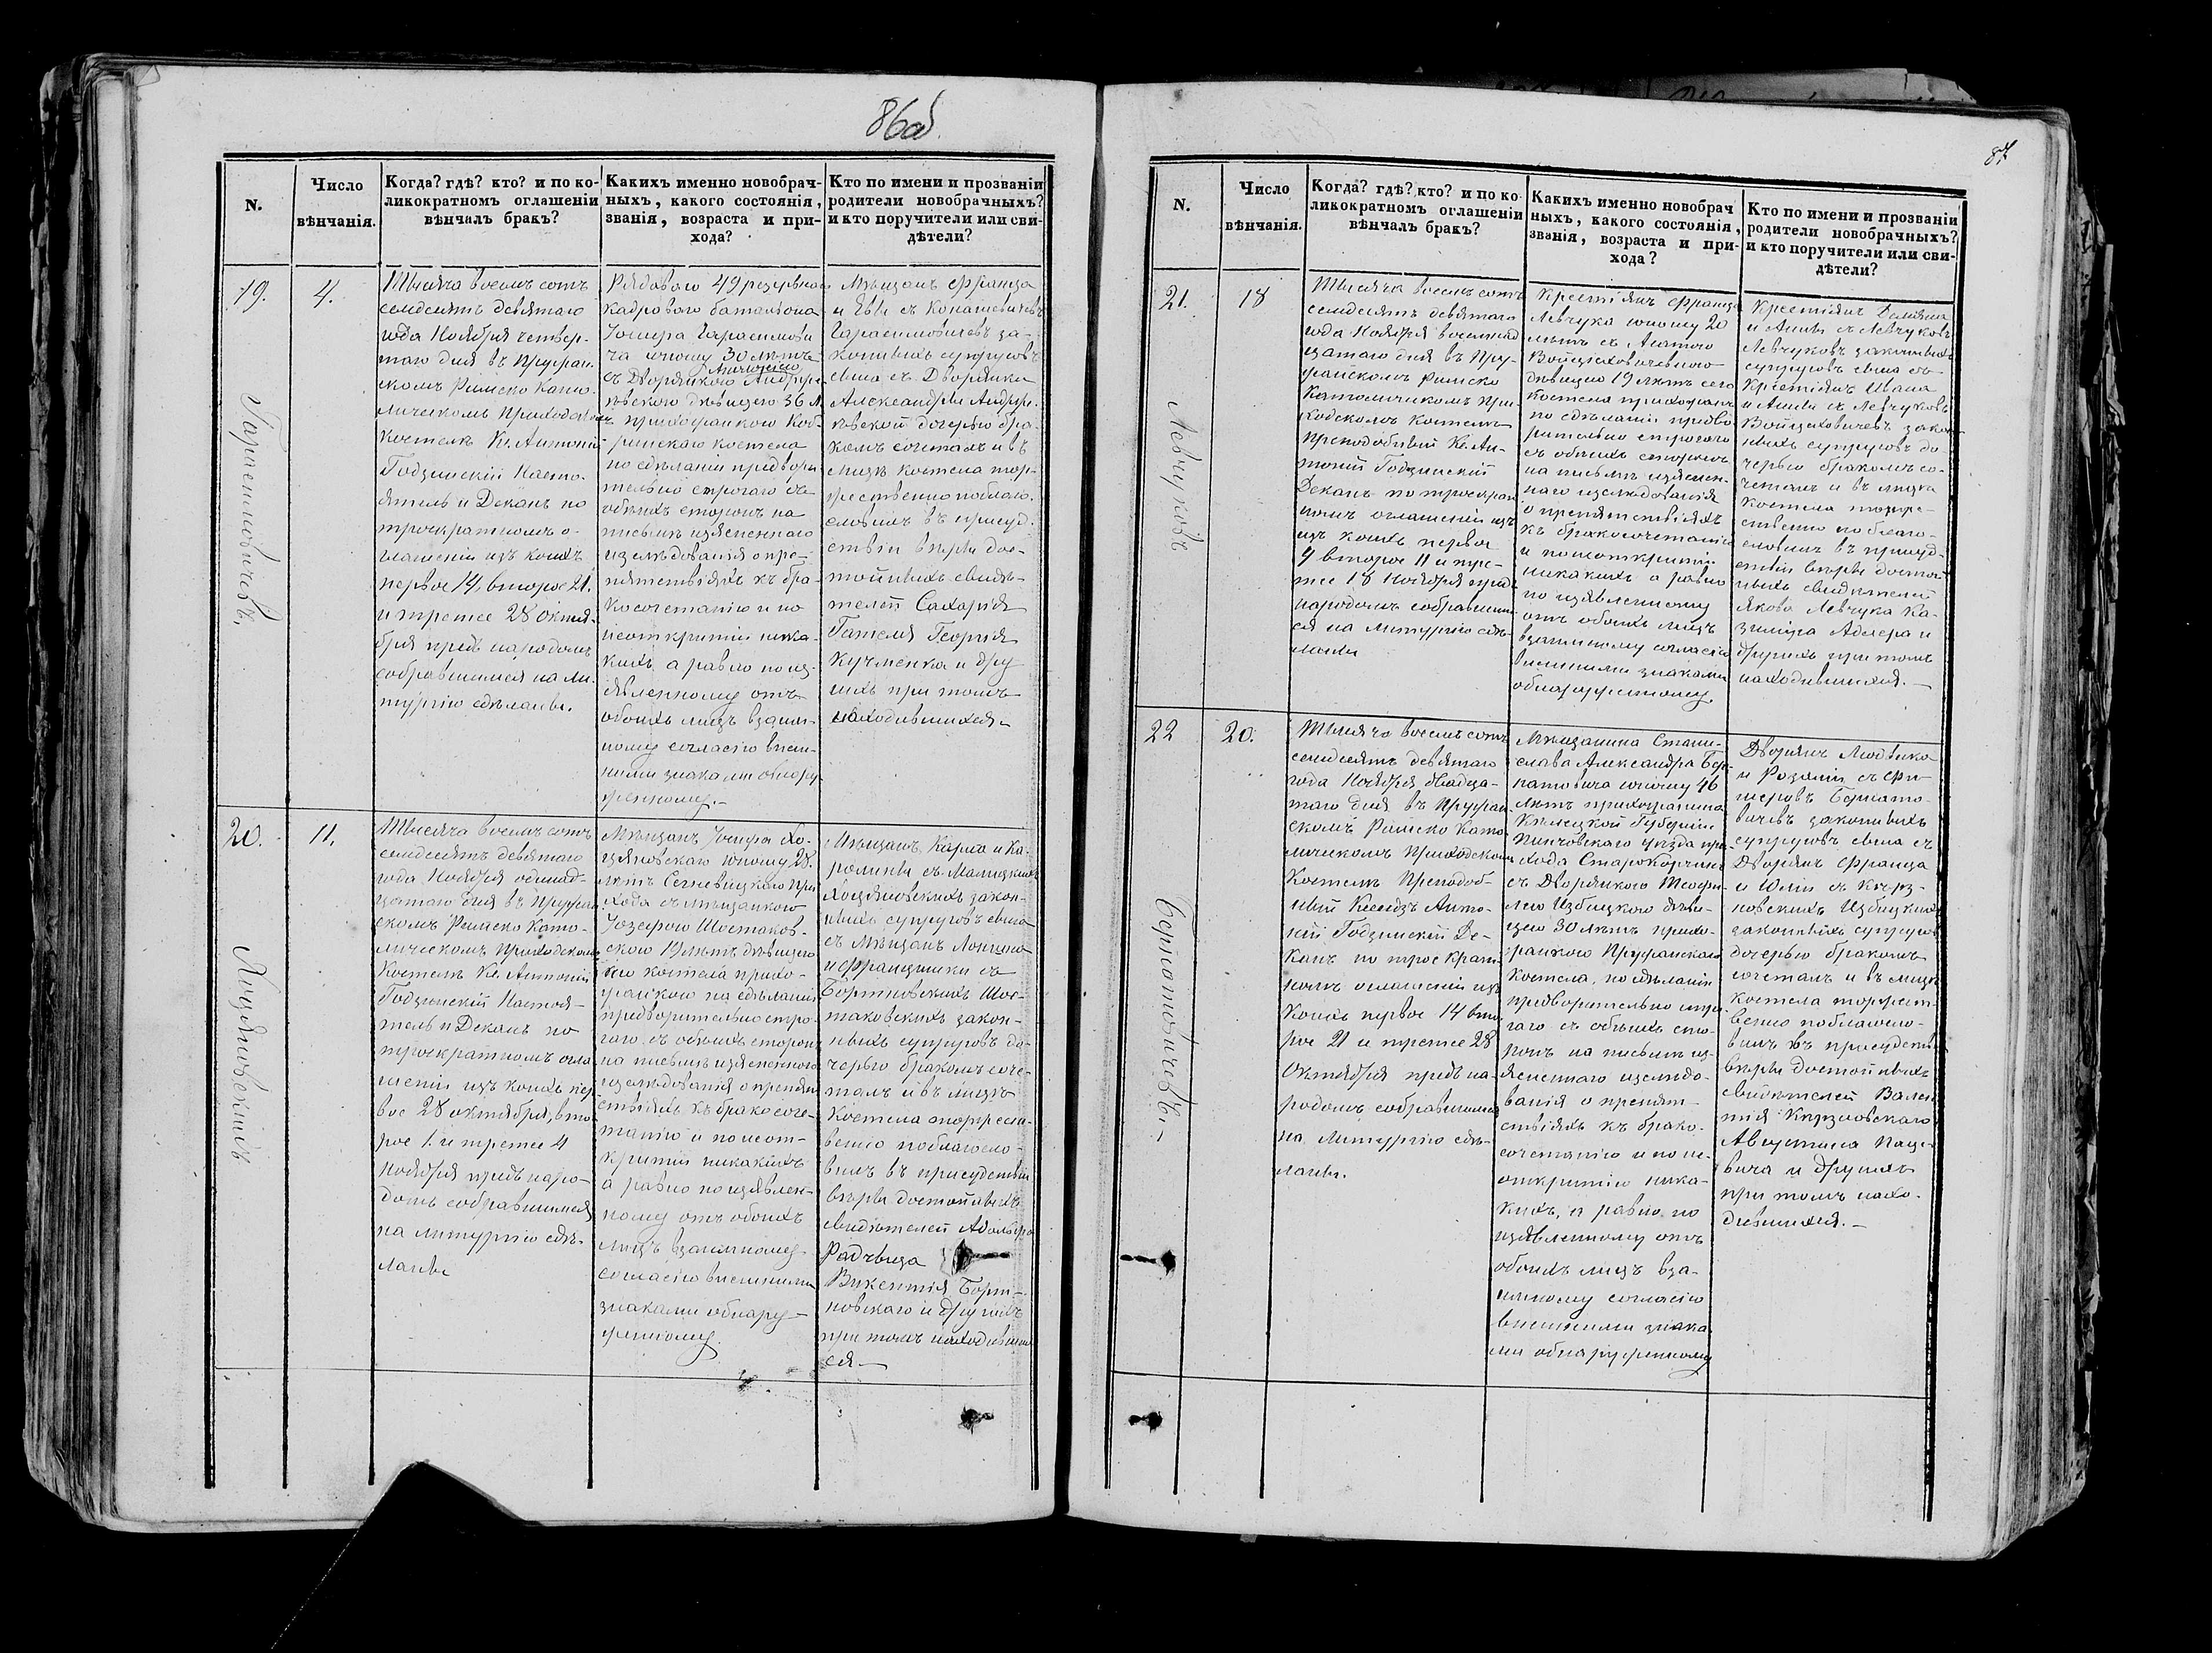 86об.
N.
Число
вѣнчанія.
Когда? гдѣ? кто? и по ко-
ликократномъ оглашеніи
вѣнчалъ бракъ?
Какихъ именно новобрач-
ныхъ, какого состоянія,
званія, возраста и при-
хода?
Кто по имени и прозваніи
родители новобрачныхъ?
и кто поручители или сви-
дѣтели?
19.
4.
Тысяча восемъ сотъ
семдесятъ девятаго
года Ноября четвер-
таго дня въ Пружан
скомъ Римско Като-
лическомъ Приходскомъ
костелѣ Кс. Антоній
Годзинскій Насто-
ятель и Деканъ по
троекратномъ о-
глашеніи изъ коихъ
первое 14, второе 21.
и третее 28 Октя-
бря предъ народомъ
собравшимся на ли-
тургію сдѣланы.
Рядоваго 49 резервнаго
кадроваго баталіона
Іосифа Гарасимови
ча юношу 30 лѣтъ
съ Дворянкою
скою дѣвицею 36 л.
прихожанкою Коб-
ринскаго костела
по сдѣланіи предвори
тельно строгаго съ
обѣихъ сторонъ на
письмѣ изясненнаго
изслѣдованія о пре-
пятствіяхъ къ бра-
косочетанію и по
неоткрытіи ника-
кихъ, а равно по из-
явленному отъ
обоихъ лицъ взаим-
ному согласію внѣш-
ними знаками обнару-
женному.-
Мѣщанъ Франца
и Евы съ
Гарасимовичевъ за-
конныхъ супруговъ
сына съ Дворянки
Александры
дочерью бра-
комъ сочеталъ и въ
лицѣ костела тор-
жественно поблаго-
словилъ въ присуд-
ствіи вѣры дос-
тойныхъ свидѣ-
телей Сахарія
Гателя Георгія
Кучменка и дру
гихъ при томъ
находившихся.
Гарасимовичевъ.
20.
11.
Тысяча восемъ сотъ
семдесятъ девятаго
года Ноября одинад-
цатаго дня въ Пружан
скомъ Римско Като-
лическомъ Приходскомъ
Костелѣ Кс. Антоній
Годзинскій Настоя-
тель и Деканъ по
троекратномъ огла
шеніи изъ коихъ пер
вое 28 октября, вто
рое 1. и третее 4
Ноября предъ наро-
домъ собравшимся
на литургію сдѣ-
ланы
Мѣщанъ Іосифа Хо-
цяновскаго юношу 28.
лѣтъ Сегневицкаго при
хода съ мѣщанкою
Іозефою Шостаков-
скою 19 лѣтъ дѣвицею
костела прихо-
жанкою по сдѣланіи
предворительно стро-
гаго съ обѣихъ сторонъ
на письмѣ изясненнаго
изслѣдованія о препят
ствіяхъ къ бракосоче-
танію и по неот-
крытіи никакихъ
а равно по изявлен-
ному отъ обоихъ
лицъ взаимному
согласію внѣшними
знаками обнару-
женному.
Мѣщанъ Карла и Ка-
ролины съ Малицкихъ
Хоцяновскихъ закон-
ныхъ супруговъ сына
съ Мѣщанъ Лонгина
и Францишки съ
Бортновскихъ Шос-
таковскихъ закон-
ныхъ супруговъ до-
черью бракомъ соче-
талъ и въ лицѣ
Костела торжест-
венно поблагосло-
вилъ въ присудствіи
вѣры достойныхъ
свидѣтелей Адольфа
Радзвица
Викентія Борт-
новскаго и другихъ
при томъ находивших
ся.-
Хоцяновскихъ
87
N.
Число
вѣнчанія.
Когда? гдѣ? кто? и по ко
ликократномъ оглашеніи
вѣнчалъ бракъ?
Какихъ именно новобрач
ныхъ, какого состоянія,
званія, возраста и при-
хода?
Кто по имени и прозваніи
родители новобрачныхъ?
и кто поручители или сви-
дѣтели?
21.
18
Тысяча восемъ сотъ
семдесятъ девятаго
года Ноября восемнад
цатаго дня въ Пру-
жанскомъ Римско
Католическомъ При-
ходскомъ Костелѣ
Преподобный Кс. Ан-
тоній Годзинскій
Деканъ по троекрат
номъ оглашеніи изъ
изъ коихъ первое
4 второе 11 и тре-
тее 18 Ноября предъ
народомъ собравшим
ся на литургію сдѣ-
ланы
Крестьянъ Франца
Левчука юношу 20
лѣтъ съ Агатою
Войцеховичевною
дѣвицею 19 лѣтъ сего
костела прихожанъ
по сдѣланіи предво
рительно строгого
съ обѣихъ сторонъ
на письмѣ изяснен-
наго изслѣдованія
о препятствіяхъ
къ бракосочетанію
и по неоткрытіи
никакихъ а равно
по изявленному
отъ обоихъ лицъ
взаимному согласію
внѣшними знаками
обнаруженному.
Крестьянъ Демяна
и Анны съ Левчуковъ
Левчуковъ законныхъ
супруговъ сына съ
Крестьянъ Ивана
и Анны съ Левчуковъ
Войцеховичевъ закон
ныхъ супруговъ до
черью бракомъ со-
четалъ и въ лицѣ
Костела торже-
ственно поблаго-
словилъ въ присуд-
ствіи вѣры достой
ныхъ свидѣтелей
Якова Левчука Ка-
зиміра Адлера и
другихъ при томъ
находившихся.-
Левчуковъ
22
20.
Тысяча восемъ сотъ
семдесятъ девятаго
года Ноября двадца-
таго дня въ Пружан
скомъ Римско Като-
лическомъ Приходскомъ
Костелѣ Преподоб-
ный Ксендзъ Анто-
ній Годзинскій Де-
канъ по троекрат-
номъ оглашеніи изъ
коихъ первое 14 вто
рое 21 и третее 28
Октября предъ на-
родомъ собравшимся
на Литургію сдѣ-
ланы.
Мѣщанина Стани-
слава Александра Бер-
натовича юношу 46
лѣтъ прихожанина
Кѣлецкой Губерніи
Пинчовскаго уѣзда при
хода Старокорчинс
съ Дворянкою Теофи-
лею Избицкою дѣви-
цею 30 лѣтъ прихо-
жанкою Пружанскаго
Костела, по сдѣланіи
предворительно стро-
гаго съ обѣихъ сто-
ронъ на письмѣ из-
ясненнаго изслѣдо-
ванія о препят-
ствіяхъ къ брако-
сочетанію и по не-
открытію ника-
кихъ, а равно по
изявленному отъ
обоихъ лицъ вза-
имному согласію
внѣшними знака
ми обнаруженному
Дворянъ Людвика
и Розаліи съ Фи-
шеровъ Бернато-
вичевъ законныхъ
супруговъ сына съ
Дворянъ Франца
и Юліи съ Кърз-
новскихъ Избицкихъ
законныхъ супруговъ
дочерью бракомъ
сочеталъ и въ лицѣ
костела торжест-
венно поблагосло-
вилъ въ присудствіи
вѣры достойныхъ
свидѣтелей Вален
тія Кързновскаго
Августина Паце-
вича и другихъ
при томъ нахо-
дившихся.-
Бернатовичевъ.-